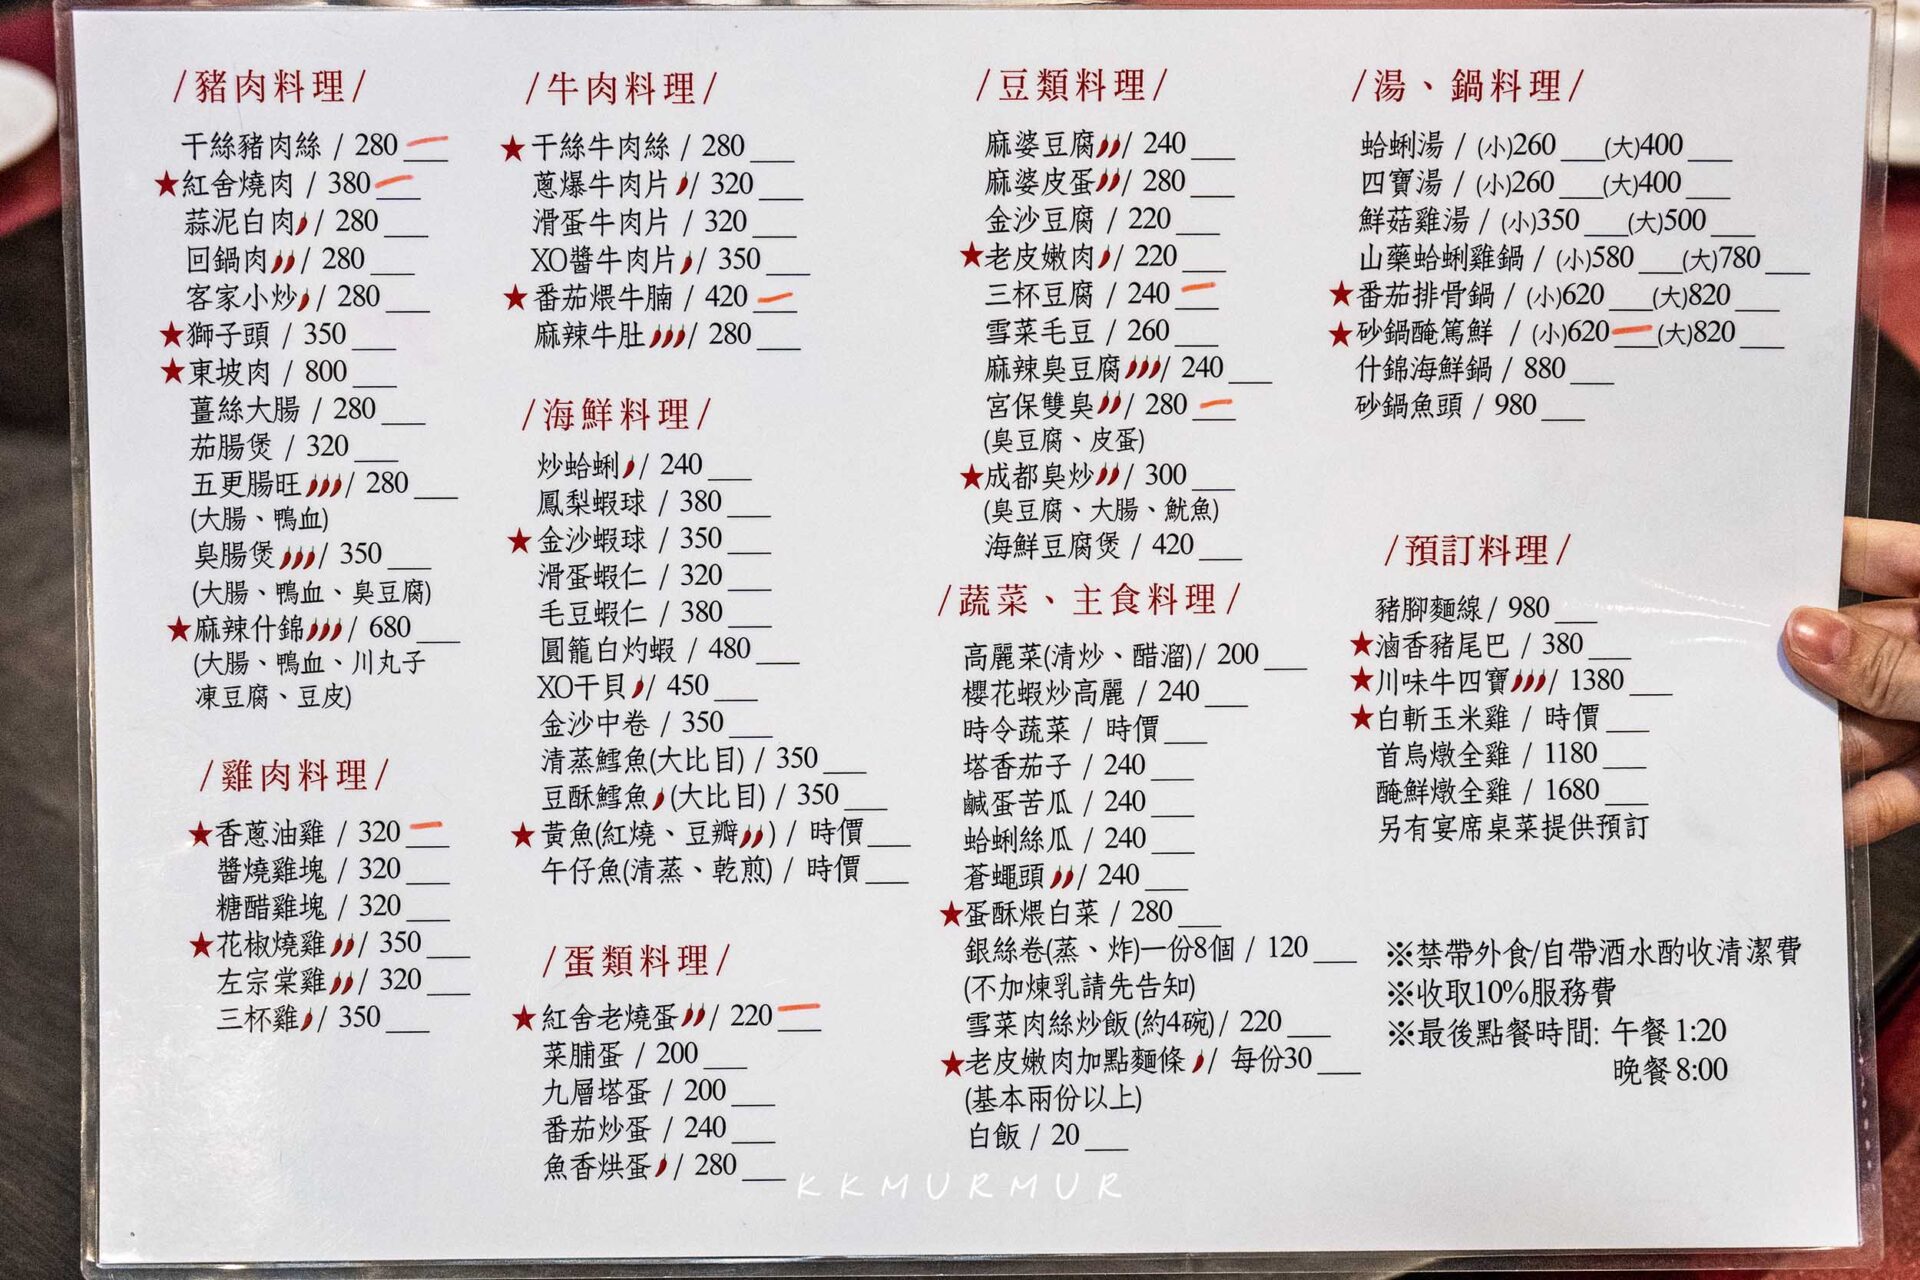 /豬肉料理/
干絲豬肉絲 / 280
★紅舍燒肉 / 380
蒜泥白肉 / 280
回鍋肉 / 280
客家小炒 / 280
★獅子頭 / 350
★東坡肉 / 800
薑絲大腸 / 280
茄腸煲 / 320
五更腸旺 / 280
(大腸、鴨血)
臭腸煲 / 350
(大腸、鴨血、臭豆腐)
★麻辣什錦 / 680
(大腸、鴨血、川丸子
凍豆腐、豆皮)
/雞肉料理/
★香蔥油雞 / 320
醬燒雞塊 / 320
糖醋雞塊 / 320
★花椒燒雞 / 350
左宗棠雞 / 320
三杯雞 / 350
/牛肉料理/
★干絲牛肉絲 / 280
蔥爆牛肉片 / 320
滑蛋牛肉片 / 320
XO醬牛肉片 / 350
★番茄煨牛腩 / 420
麻辣牛肚 / 280
/海鮮料理/
炒蛤蜊 / 240
鳳梨蝦球 / 380
★金沙蝦球 / 350
滑蛋蝦仁 / 320
毛豆蝦仁 / 380
圓籠白灼蝦 / 480
XO干貝 / 450
金沙中卷 / 350
清蒸鱈魚(大比目) / 350
豆酥鱈魚(大比目) / 350
★黃魚(紅燒、豆瓣) / 時價
午仔魚(清蒸、乾煎) / 時價
/蛋類料理/
★紅舍老燒蛋 / 220
菜脯蛋 / 200
九層塔蛋 / 200
番茄炒蛋 / 240
魚香烘蛋 / 280
/豆類料理/
麻婆豆腐 / 240
麻婆皮蛋 / 280
金沙豆腐 / 220
★老皮嫩肉 / 220
三杯豆腐 / 240
雪菜毛豆 / 260
麻辣臭豆腐 / 240
宮保雙臭 / 280
(臭豆腐、皮蛋)
★成都臭炒 / 300
(臭豆腐、大腸、魷魚)
海鮮豆腐煲 / 420
/蔬菜、主食料理/
高麗菜(清炒、醋溜) / 200
櫻花蝦炒高麗 / 240
時令蔬菜 / 時價
塔香茄子 / 240
鹹蛋苦瓜 / 240
蛤蜊絲瓜 / 240
蒼蠅頭 / 240
★蛋酥煨白菜 / 280
銀絲卷(蒸、炸)一份8個 / 120
(不加煉乳請先告知)
雪菜肉絲炒飯(約4碗) / 220
★老皮嫩肉加點麵條 / 每份30
(基本兩份以上)
白飯 / 20
/湯、鍋料理/
蛤蜊湯 / (小)260 (大)400
四寶湯 / (小)260 (大)400
鮮菇雞湯 / (小)350 (大)500
山藥蛤蜊雞鍋 / (小)580 (大)780
★番茄排骨鍋 / (小)620 (大)820
★砂鍋醃篤鮮 / (小)620 (大)820
什錦海鮮鍋 / 880
砂鍋魚頭 / 980
/預訂料理/
豬腳麵線 / 980
★滷香豬尾巴 / 380
★川味牛四寶 / 1380
★白斬玉米雞 / 時價
首烏燉全雞 / 1180
醃鮮燉全雞 / 1680
另有宴席桌菜提供預訂
※禁帶外食/自帶酒水酌收清潔費
※收取10%服務費
※最後點餐時間: 午餐 1:20
晚餐 8:00
KKMURMUR